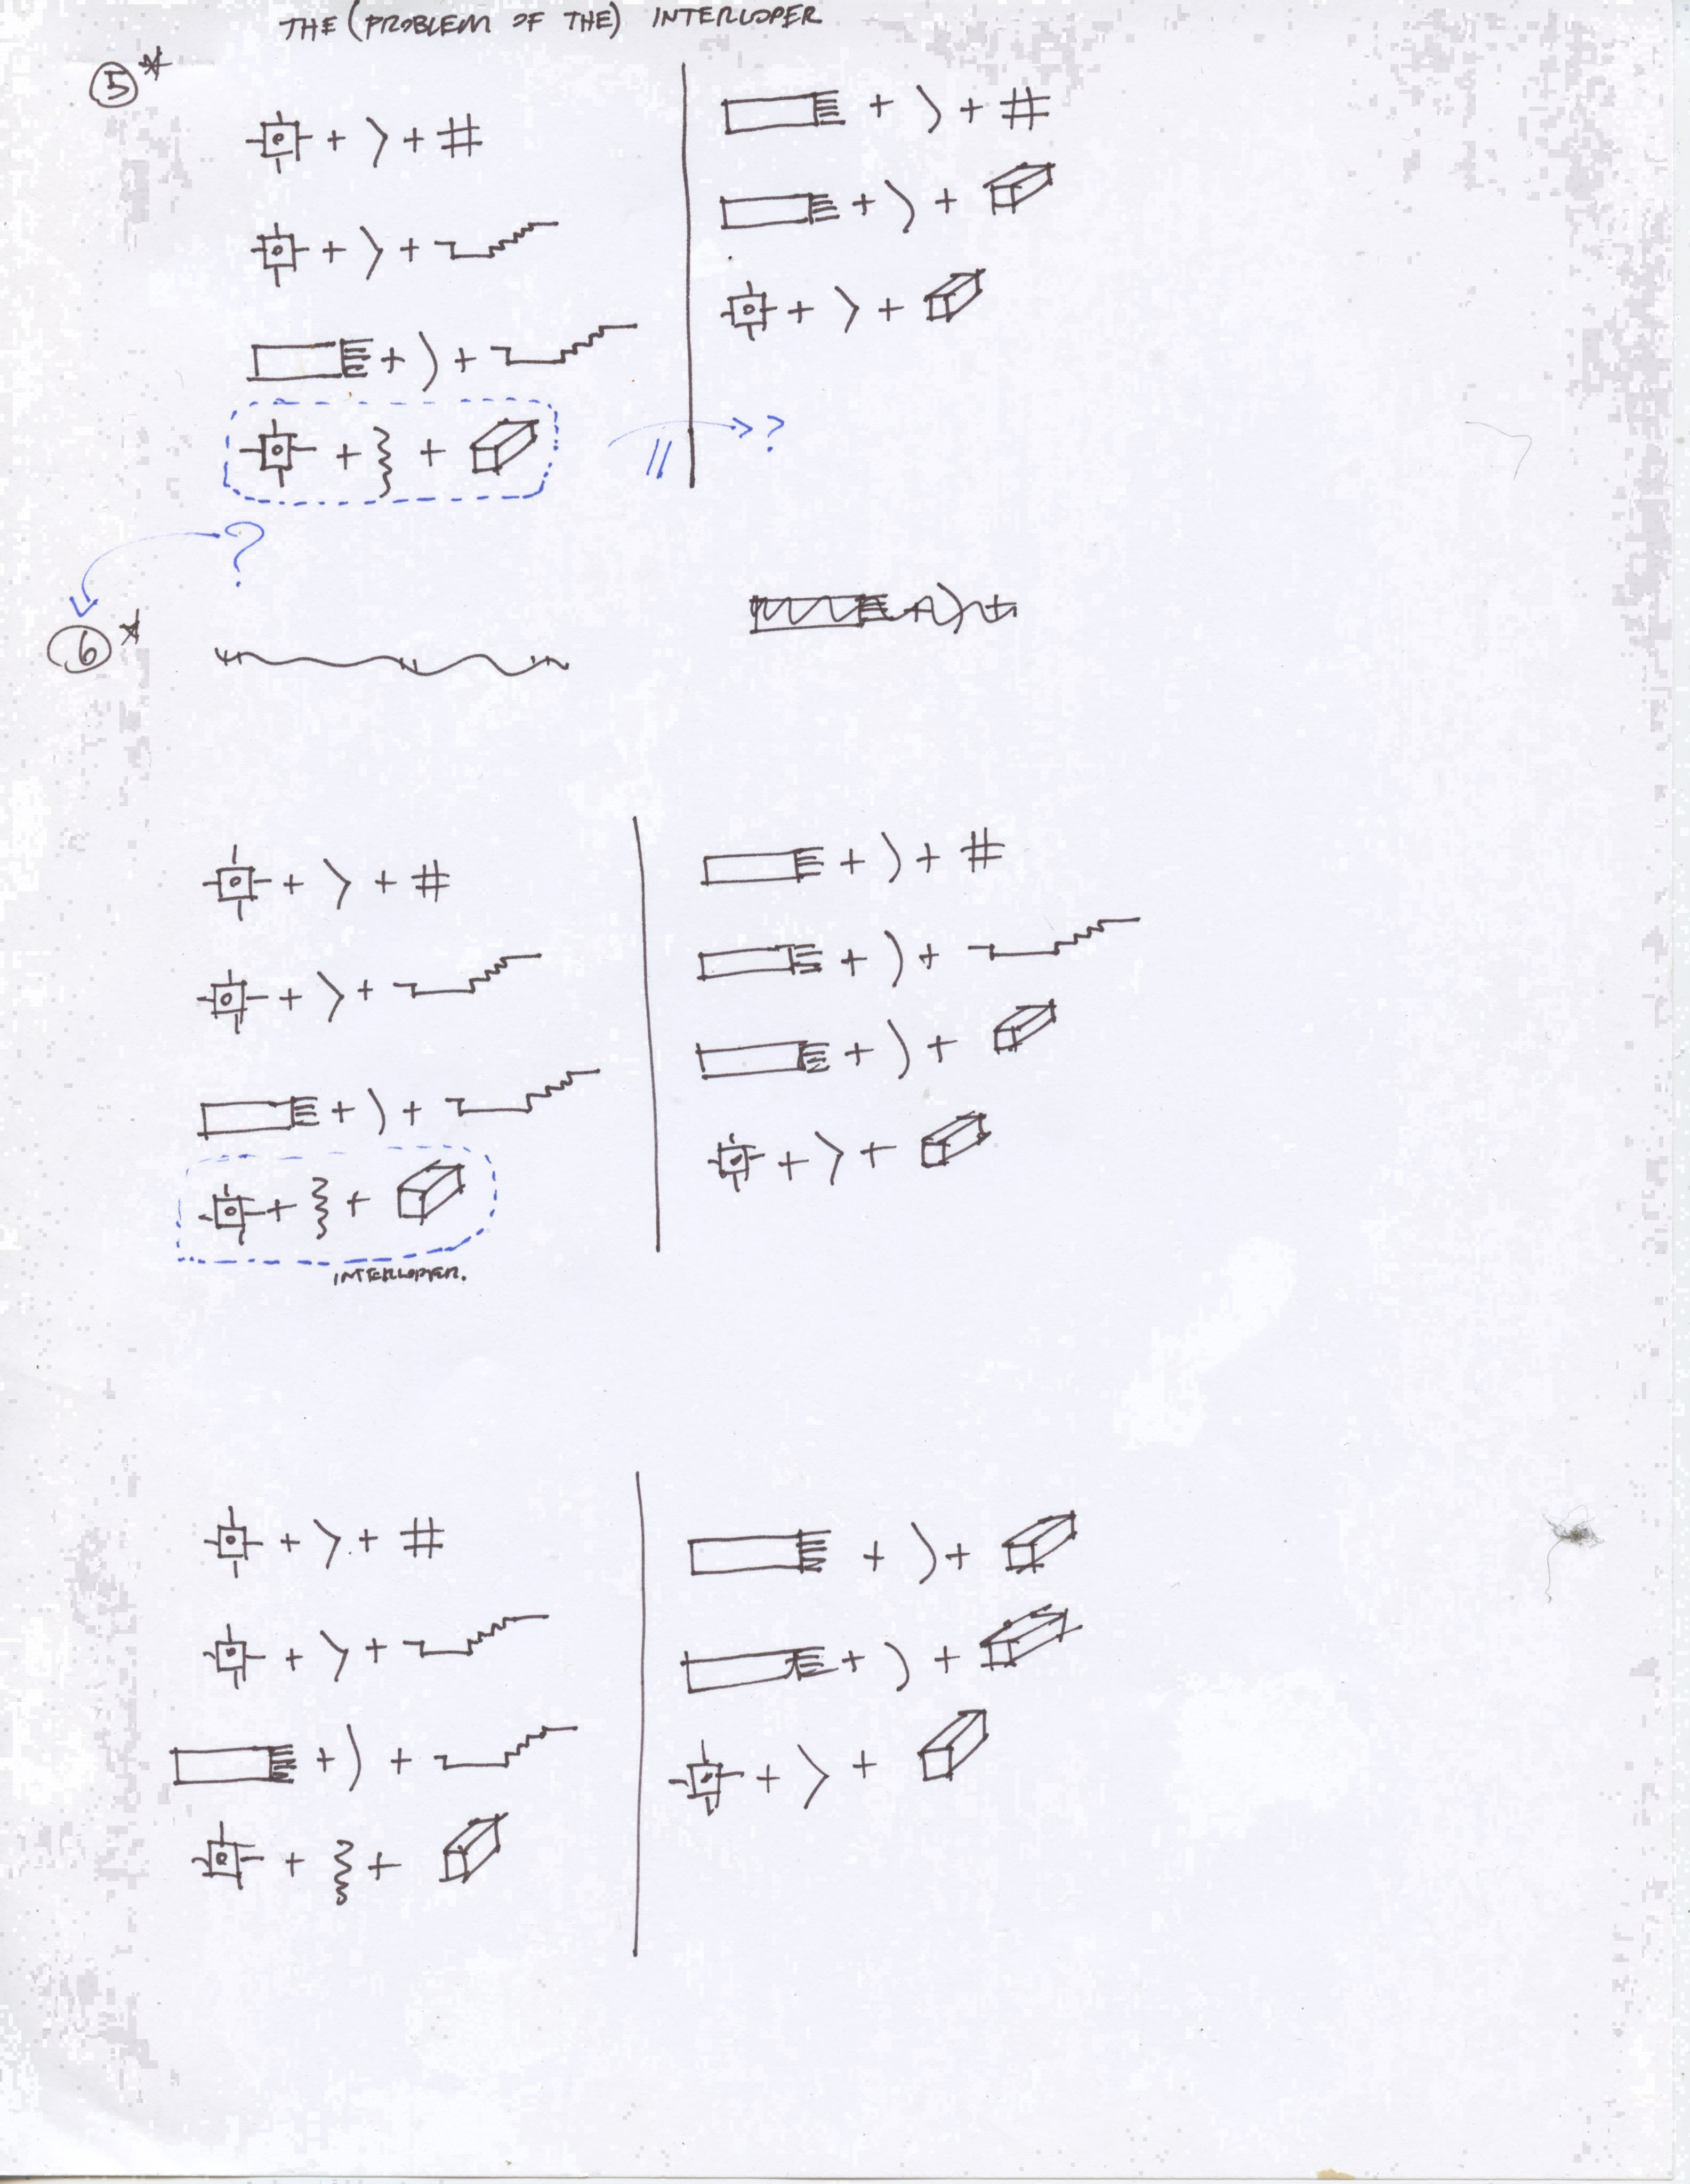 THE (PROBLEM OF THE) INTERLOPER
5*
+ + #
+ +
+ +
+ +
?
+ + #
+ +
+ +
?
6*
+ + #
+ +
+ +
+ +
INTERLOPER.
+ + #
+ +
+ +
+ +
+ + #
+ +
+ +
+ +
+ +
+ +
+ +